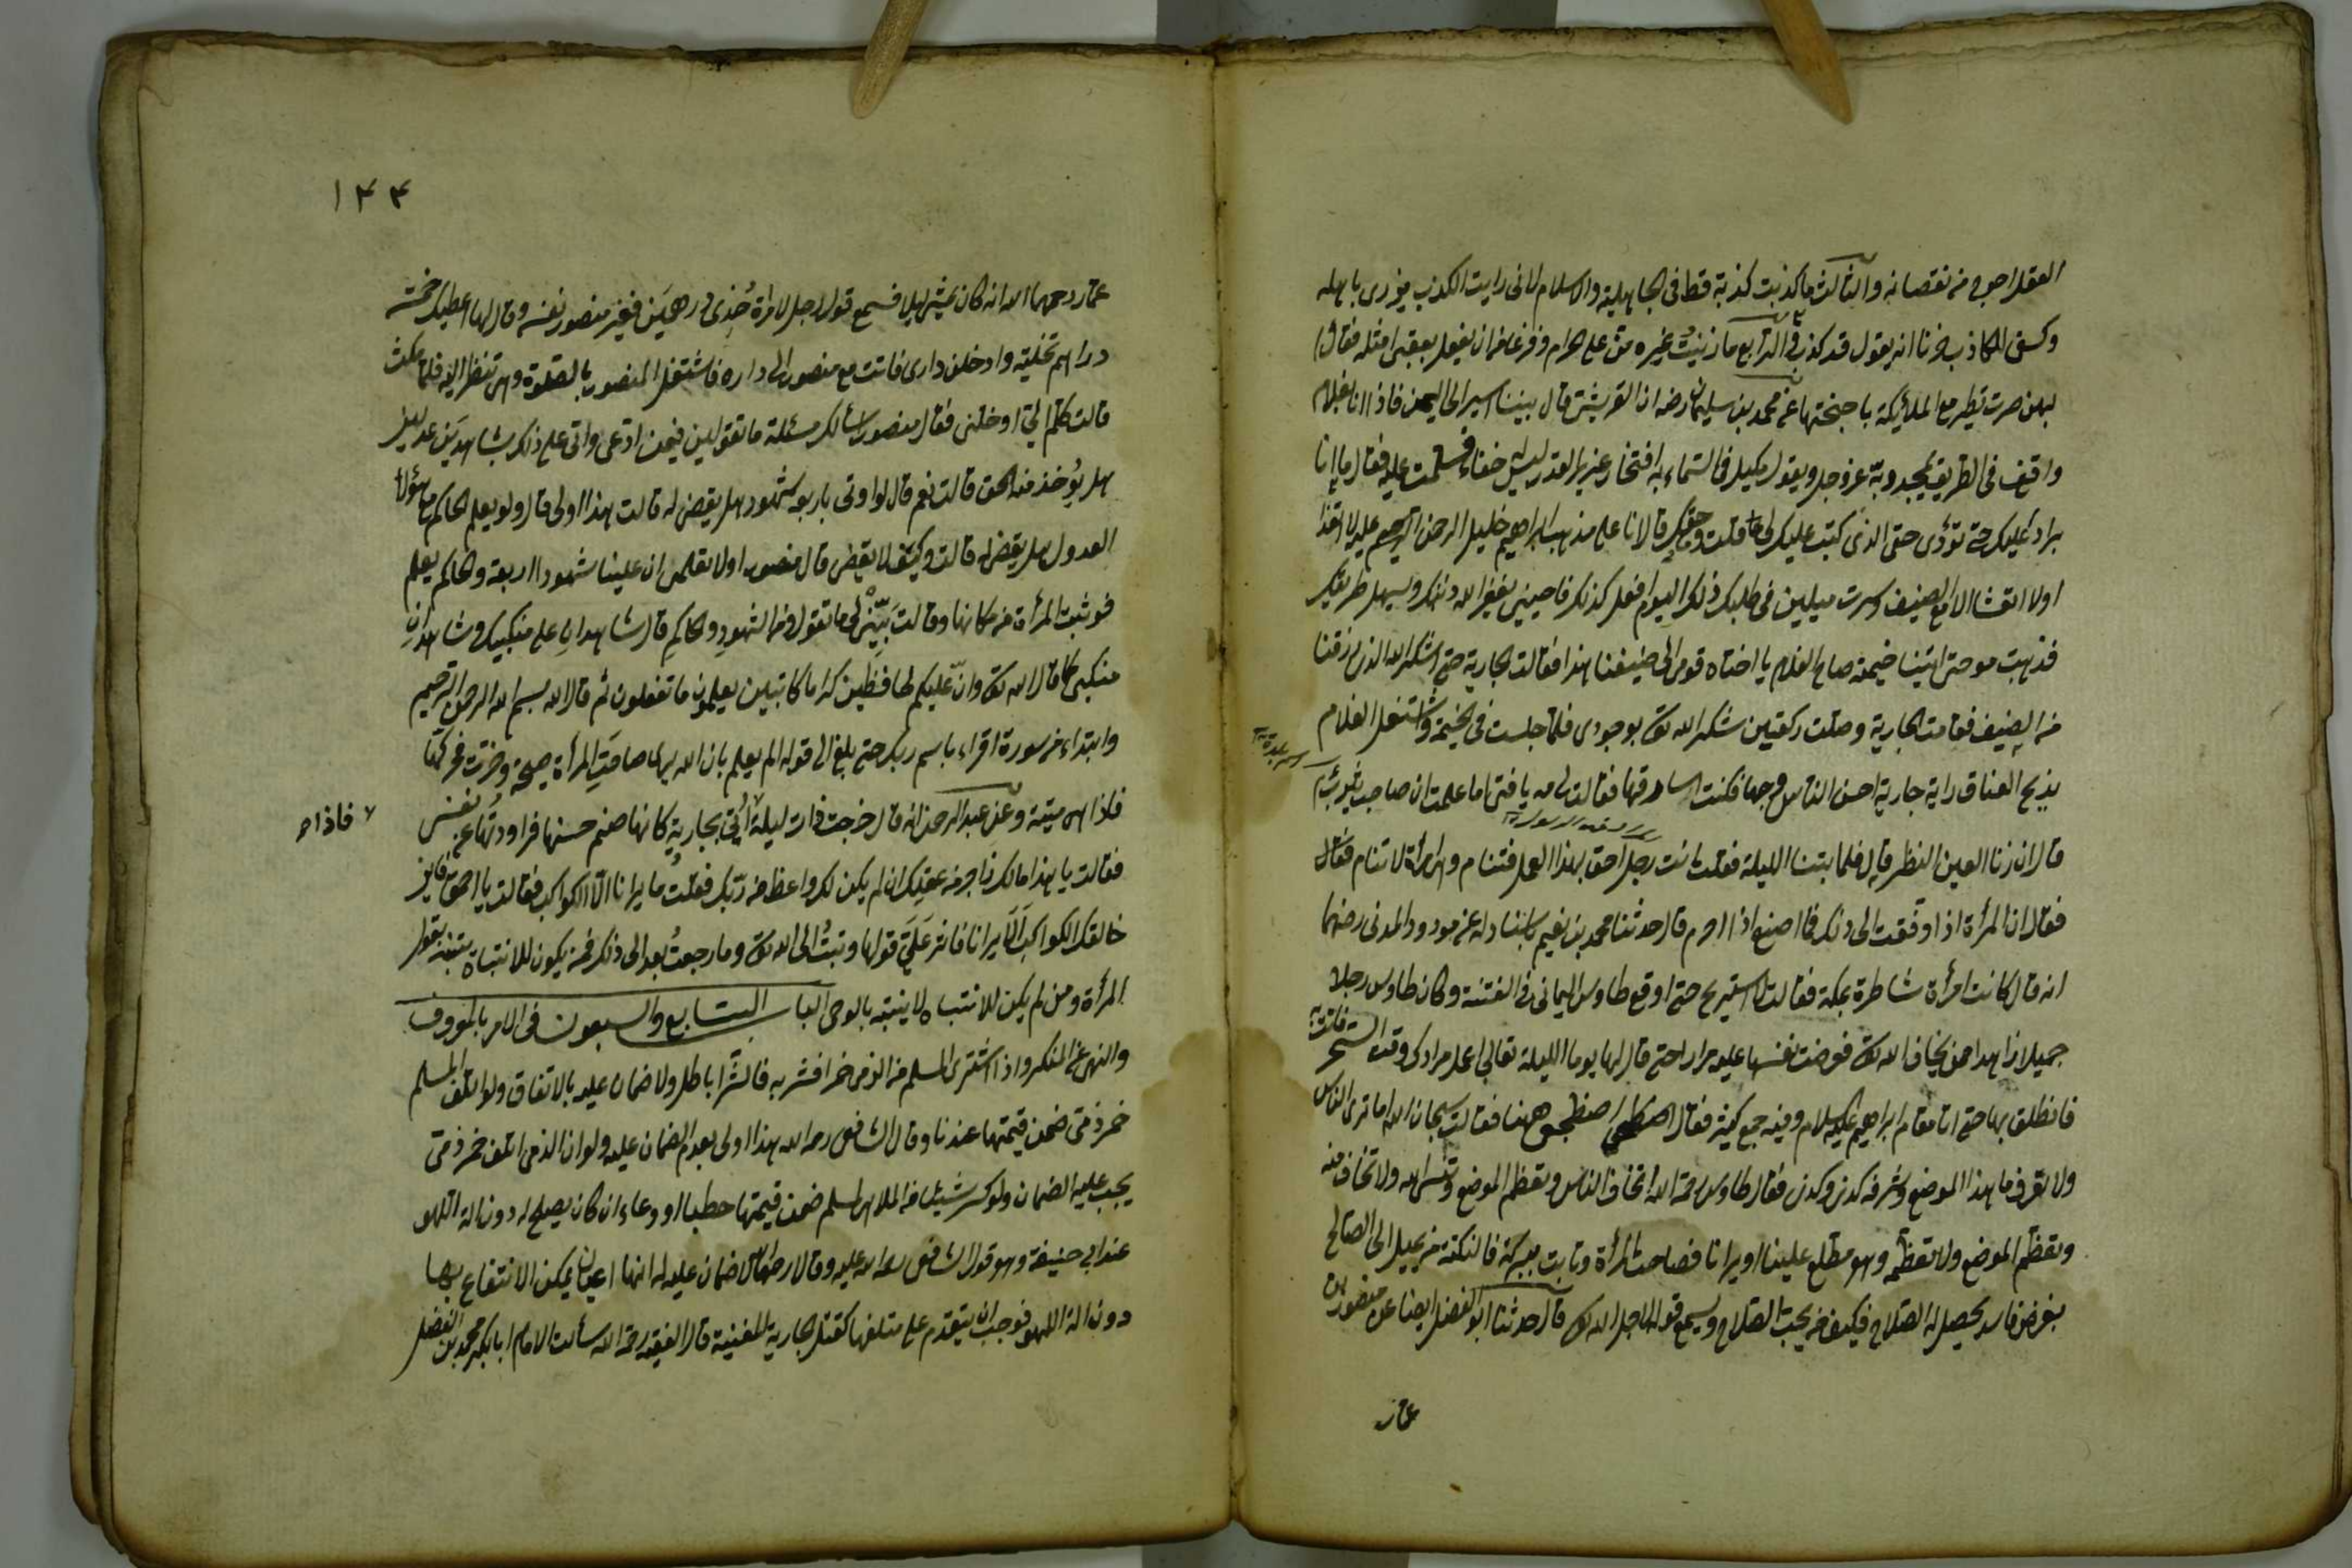 العقل احب من نقصانه والثالث ما كذبت كذبة قط فى الجاهلية والاسلام لانى رايت الكذب يزرى باهله
وكسى الكاذب خزنا انه يقول قد كذب والرابع ما زنيت غيره منى على حرام وفزعا من ان يفعل بعقبى مثله فقال
لهن صرت تطير مع الملائكة باجنحتها عن محمد بن سليمان رضه ان القريشى قال بينا اسير الى اليمن فاذا انا بغلام
واقف فى الطريق يمجد ربه عز وجل ويقول مليك فى السماء به افتخار عزيز القدر ليس به خفاء فسلمت عليه فقال ما انا
براد عليك حتى تؤدى حقى الذى كتبت عليك لى قلت وما حقك قال انا على مذهب ابراهيم خليل الرحمن لا اتغدا
اولا اتعشا الا مع الضيف وسرت ميلين فى طلبك ذلك اليوم
فذهبت معه حتى اتينا خيمة صاح الغلام يا اختاه قومى الى ضيفنا هذا فقالت الجارية حتى اشكر الله الذى رزقنا
من الضيف فقامت الجارية وصلت ركعتين شكر الله تعا بوجودى فلما جلست فى الخيمة واشتغل الغلام
بذبح العناق راية جارية احسن الناس وجها فكنت اسارقها فقالت لى مه يا فتى اما علمت ان صاحب يثرب
قال ان زنا العين النظر قال فلما بتنا الليلة فقلت انت رجل احق بهذا العمل فتنام وامرأة لا تنام فقال
فقال ان المرأة اذا وفقت الى ذلك فما اصنع اذا احرم قال حدثنا محمد بن نعيم باسناد له عن مودود المدنى رضهما
انه قال كانت امرأة شاطرة بمكة فقالت لا استريح حتى اوقع طاوس اليمانى فى الفتنة وكان طاوس رجلا
جميلا زاهدا ممن يخاف الله تعا فعرضت نفسها عليه مرارا حتى قال لها يوما الليلة تعالى اعمل مرادك وقت السحر فاتت
فانطلق بها حتى اتا مقام ابراهيم عليه السلام وفيه جمع كثير فقال اضطجعى ههنا فقالت سبحان الله اما ترى الناس
ولا تعرف ما هذا الموضع وشرفه كذى وكذى فقال طاوس رحمة الله اتخاف الناس وتعظم الموضع وتنسى الله ولا تخاف منه
وتعظم الموضع ولا تعظمه وهو مطلع علينا او يرانا فصاحت المرأة وتابت ببركة فالنكتة من يميل الى الصالح
بغرض فاسد يحصل له الصلاح فكيف من يحب الصلاح ويسمع قوله لاجل الله تعا قال حدثنا ابو الفضل ايضا عن منصور بن
عمار
١٤٤
عمار رحمهما الله انه كان يمشى ليلا فسمع قول رجل لامرأة خذى درهمين فغير منصور نفسه وقال لها اعطيك خمسة
دراهم تخلية وادخلى دارى فاتت مع منصور الى داره فاشتغل المنصور بالصلوة وهى تنظر اليه فلما مكث
قالت كلم الى اوخلنى فقال منصور اسألك مسئلة ما تقولين فيمن ادعى واتى على ذلك بشاهدين عدلين
هل يؤخذ منه الحق قالت نعم قال لو اوتى باربعة شهود هل يقضى له قالت هذا اولى قال ولو يعلم الحاكم مع هؤلاء
العدول هل يقضى له قالت وكيف لا يقضى قال منصور اولا تعلمى ان علينا شهودا اربعة والحاكم يعلم
فوثبت المرأة من مكانها وقالت بين لى ما تقول من الشهود والحاكم قال شاهدان على منكبيك وشاهدان
منكبى كما قال الله تعا وان عليكم لحافظين كراما كاتبين يعلمون ما تفعلون ثم قال الله بسم الله الرحمن الرحيم
وابتداء من سورة اقراء باسم ربك حتى بلغ الى قوله الم يعلم بان الله يرى صاحت المرأة صيحة وخرت فحركتها
فاذا هى ميتة وعن عبد الرحمن انه قال خرجت ذات ليلة بجارية كانها صنم حسنها فراودتها عن نفسى
فاذا هى
فقالت يا هذا مالك زاجر من عقلك ان لم يكن لك واعظ من ربك فقلت ما يرانا الا الكواكب فقالت يا احمق فاين
خالق الكواكب الا يرانا فاثر على قولها وتبت الى الله تعا وما رجعت بعد الى ذلك فمن يكون للانتباه يتنبه بقول
المرأة ومن لم يكن للانتباه لا ينتبه بالوحى الباب السابع والسبعون فى الامر بالمعروف
والنهى عن المنكر واذا اشترى المسلم من الذمى خمرا فشربه فالشرا باطل ولا ضمان عليه بالاتفاق ولو اتلف المسلم
خمر ذمى ضمن قيمتها عندنا وقال الشافعى رحمه الله هذا اولى بعدم الضمان عليه ولو ان الذمى اتلف خمر ذمى
يجب عليه الضمان ولو كسر شيئا من الملاهى لمسلم ضمن قيمتها حطبا او وعاء ان كان يصلح له دون الة اللهو
عند ابى حنيفة وهو قول الشافعى رحمة الله عليه وقالا رحمهما الله لا ضمان عليه له انها اعيان يمكن الانتفاع بها
دون الة اللهو فوجب ان يتقدم على متلفها كقتل الجارية المغنية قال الفقيه رحمة الله سألت الامام ابا بكر محمد بن الفضل